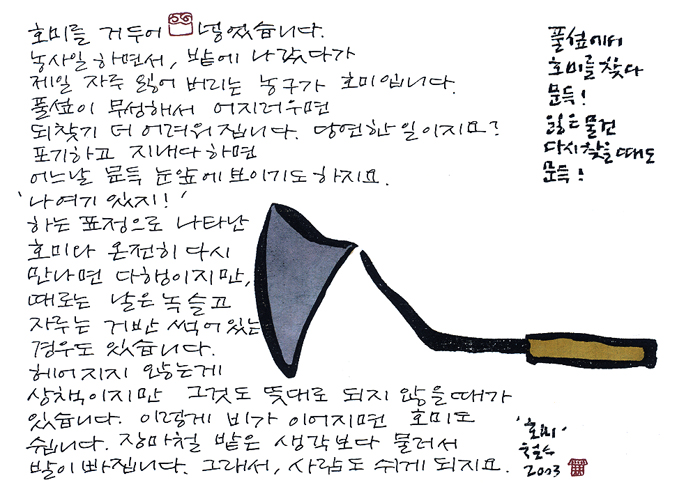 호미를 거두어 넣었습니다.
농사일 하면서, 밭에 나갔다가
제일 자주 잃어 버리는 농구가 호미입니다.
풀섶이 무성해서 어지러우면
되찾기 더 어려워집니다. 당연한 일이지요?
포기하고 지내다 하면
어느날 문득 눈앞에 보이기도 하지요.
'나 여기 있지!'
하는 표정으로 나타난
호미와 온전히 다시
만나면 다행이지만,
때로는 날은 녹슬고
자루는 거반 썩어 있는
경우도 있습니다.
헤어지지 않는게
상책이지만 그것도 뜻대로 되지 않을 때가
있습니다. 이렇게 비가 이어지면 호미도
쉽니다. 장마철 밭은 생각보다 물러서
발이 빠집니다. 그래서, 사람도 쉬게 되지요.
풀섶에서
호미를 찾다
문득!
잃은 물건
다시 찾을 때도
문득!
'호미'
철수
2003